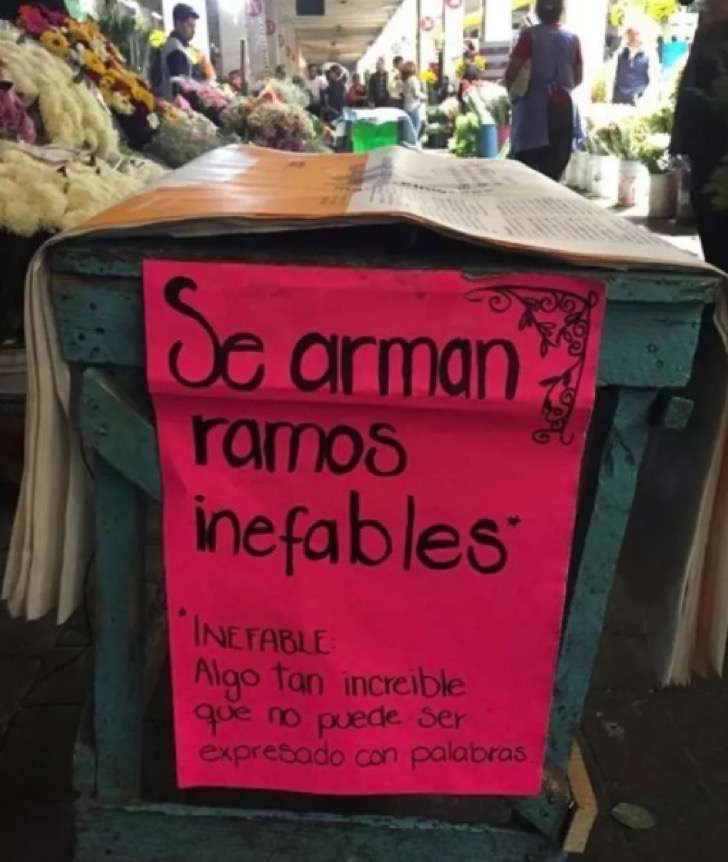 Se arman
ramos
inefables*
*INEFABLE:
Algo tan increible
que no puede ser
expresado con palabras